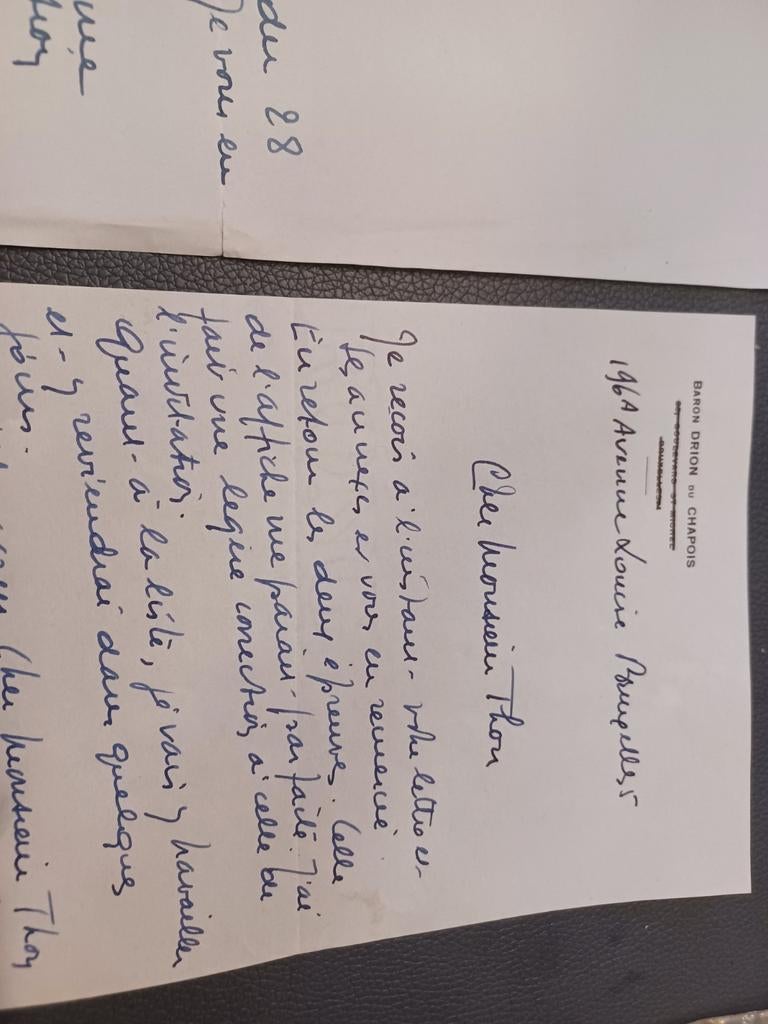 der 28
Je vous en
BARON DRION DU CHAPOIS
BOULEVARD ST MICHEL
BRUXELLES
196A Avenue Louise Bruxelles 5
Cher Monsieur Thon
Je reçois à l'instant votre lettre et
les annexes et vous en remercie.
En retour les deux épreuves. Celle
de l'affiche me paraît parfaite. J'ai
fait une légère correction à celle de
l'invitation.
Quant à la liste, je vais y travailler
et y reviendrai dans quelques
jours.
Cher Monsieur Thon